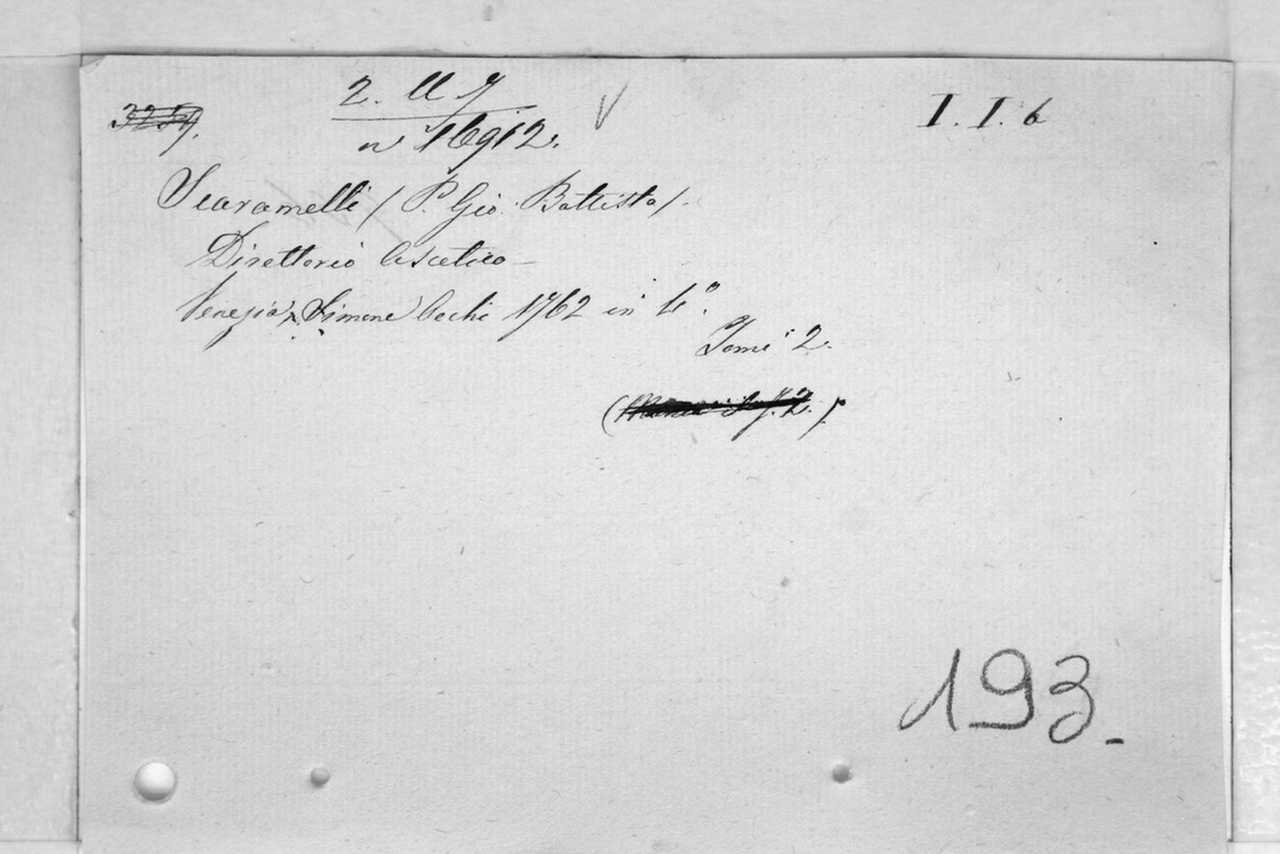 3259.
2. U 7
n 16912.
I. I. 6
Scaramelli (P. Gio. Battista).
Direttorio Ascetico
Venezia, Simone Occhi 1762 in 4°.
Tomi 2.
193.